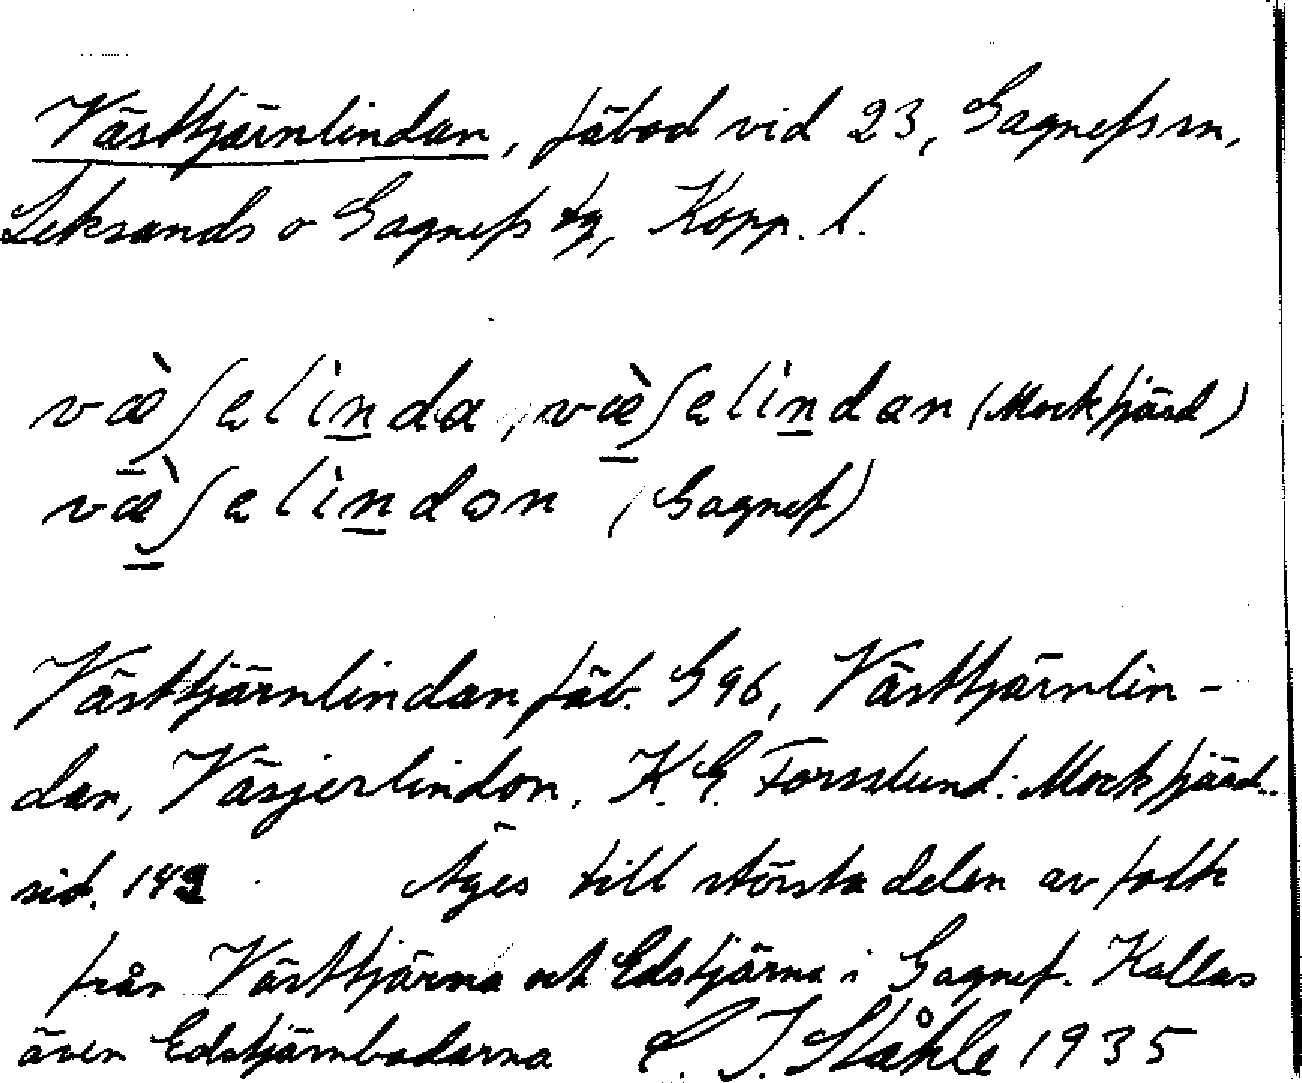 Västtjärnlindan, fäbod vid 23, Gagnefs sn,
Leksands o Gagnefs tg, Kopp. l.
væ̀ʃəlìnda, væ̀ʃəlìndan (Mockfjärd)
væ̀ʃəlìndɔn (Gagnef)
Västtjärnlindan fäb. G96, Västtjärnlin-
dan, Väsjerlindon. K. G. Forsslund: Mockfjärd..
sid. Äges till största delen av folk
från Västtjärna och Edstjärna i Gagnef. Kallas
även Edstjärnbodarna C. I. Ståhle 1935